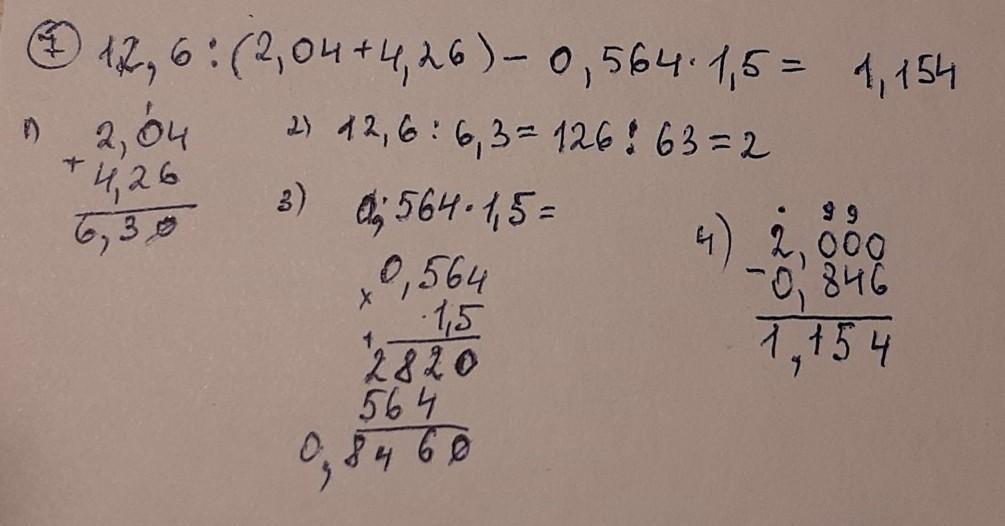 7 12,6:(2,04+4,26)-0,564·1,5= 1,154
1) 2,04
+4,26
6,30
2) 12,6:6,3=126:63=2
3) 0,564·1,5=
×0,564
1,5
+2820
564
0,8460
4) 99
2,000
-0,846
1,154